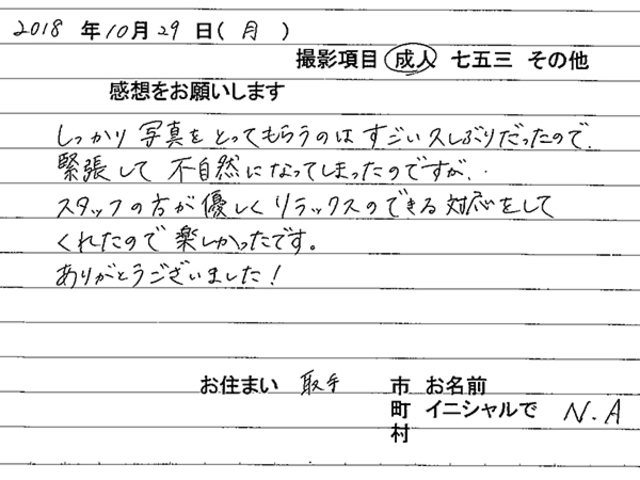 2018 年 10月 29 日 ( 月 )
撮影項目 成人 七五三 その他
感想をお願いします
しっかり 写真を とってもらうのは すごい久しぶりだったので、
緊張して 不自然になってしまったのですが、
スタッフの方が優しくリラックスのできる対応をして
くれたので 楽しかったです。
ありがとうございました!
お住まい 取手 市 お名前
町 イニシャルで N.A
村